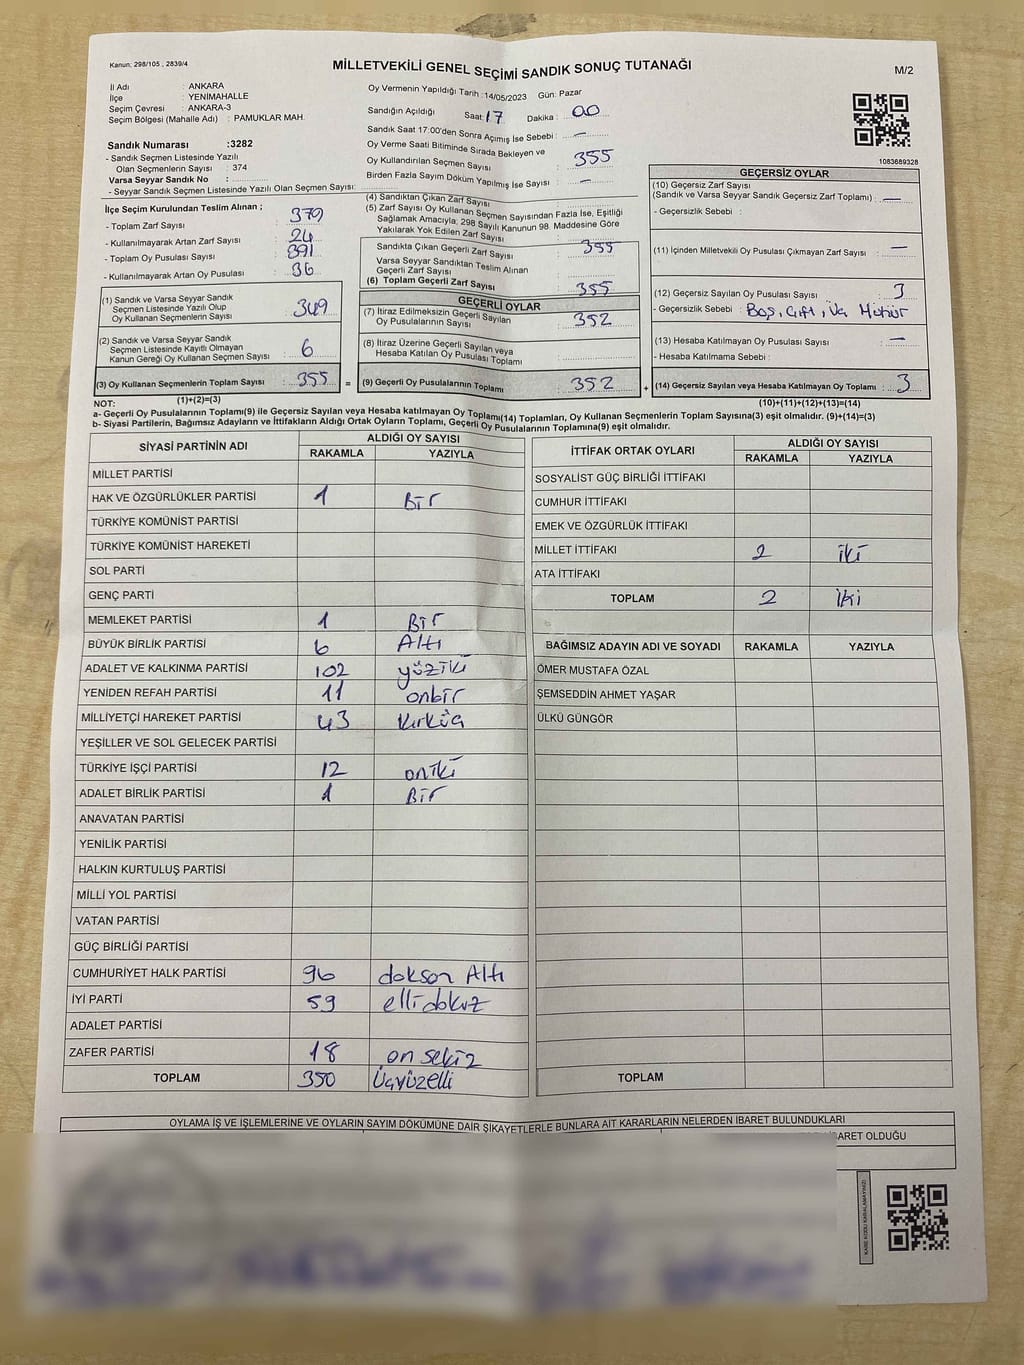 Kanun: 298/105 , 2839/4
MİLLETVEKİLİ GENEL SEÇİMİ SANDIK SONUÇ TUTANAĞI
M/2
İl Adı : ANKARA
İlçe : YENİMAHALLE
Seçim Çevresi : ANKARA-3
Seçim Bölgesi (Mahalle Adı) : PAMUKLAR MAH.
Sandık Numarası :3282
- Sandık Seçmen Listesinde Yazılı
Olan Seçmenlerin Sayısı : 374
Varsa Seyyar Sandık No :
- Seyyar Sandık Seçmen Listesinde Yazılı Olan Seçmen Sayısı:
Oy Vermenin Yapıldığı Tarih :14/05/2023 Gün: Pazar
Sandığın Açıldığı Saat: 17 Dakika : 00
Sandık Saat 17:00'den Sonra Açımış İse Sebebi : —
Oy Verme Saati Bitiminde Sırada Bekleyen ve
Oy Kullandırılan Seçmen Sayısı : 355
Birden Fazla Sayım Döküm Yapılmış İse Sayısı : —
1083689328
İlçe Seçim Kurulundan Teslim Alınan ;
- Toplam Zarf Sayısı : 379
- Kullanılmayarak Artan Zarf Sayısı : 24
- Toplam Oy Pusulası Sayısı : 391
- Kullanılmayarak Artan Oy Pusulası : 36
(1) Sandık ve Varsa Seyyar Sandık
Seçmen Listesinde Yazılı Olup
Oy Kullanan Seçmenlerin Sayısı : 349
(2) Sandık ve Varsa Seyyar Sandık
Seçmen Listesinde Kayıtlı Olmayan
Kanun Gereği Oy Kullanan Seçmen Sayısı : 6
(3) Oy Kullanan Seçmenlerin Toplam Sayısı : 355 =
(1)+(2)=(3)
(4) Sandıktan Çıkan Zarf Sayısı :
(5) Zarf Sayısı Oy Kullanan Seçmen Sayısından Fazla İse, Eşitliği
Sağlamak Amacıyla; 298 Sayılı Kanunun 98. Maddesine Göre
Yakılarak Yok Edilen Zarf Sayısı :
Sandıkta Çıkan Geçerli Zarf Sayısı : 355
Varsa Seyyar Sandıktan Teslim Alınan
Geçerli Zarf Sayısı :
(6) Toplam Geçerli Zarf Sayısı : 355
GEÇERLİ OYLAR
(7) İtiraz Edilmeksizin Geçerli Sayılan
Oy Pusulalarının Sayısı : 352
(8) İtiraz Üzerine Geçerli Sayılan veya
Hesaba Katılan Oy Pusulası Toplamı :
(9) Geçerli Oy Pusulalarının Toplamı : 352 +
GEÇERSİZ OYLAR
(10) Geçersiz Zarf Sayısı
(Sandık ve Varsa Seyyar Sandık Geçersiz Zarf Toplamı) : —
- Geçersizlik Sebebi :
(11) İçinden Milletvekili Oy Pusulası Çıkmayan Zarf Sayısı : —
(12) Geçersiz Sayılan Oy Pusulası Sayısı : 3
- Geçersizlik Sebebi : Boş, Çift, Üç Mühür
(13) Hesaba Katılmayan Oy Pusulası Sayısı : —
- Hesaba Katılmama Sebebi :
(14) Geçersiz Sayılan veya Hesaba Katılmayan Oy Toplamı : 3
(10)+(11)+(12)+(13)=(14)
NOT:
a- Geçerli Oy Pusulalarının Toplamı(9) ile Geçersiz Sayılan veya Hesaba katılmayan Oy Toplamı(14) Toplamları, Oy Kullanan Seçmenlerin Toplam Sayısına(3) eşit olmalıdır. (9)+(14)=(3)
b- Siyasi Partilerin, Bağımsız Adayların ve İttifakların Aldığı Ortak Oyların Toplamı, Geçerli Oy Pusulalarının Toplamına(9) eşit olmalıdır.
SİYASİ PARTİNİN ADI ALDIĞI OY SAYISI
RAKAMLA YAZIYLA
MİLLET PARTİSİ
HAK VE ÖZGÜRLÜKLER PARTİSİ 1 Bir
TÜRKİYE KOMÜNİST PARTİSİ
TÜRKİYE KOMÜNİST HAREKETİ
SOL PARTİ
GENÇ PARTİ
MEMLEKET PARTİSİ 1 Bir
BÜYÜK BİRLİK PARTİSİ 6 Altı
ADALET VE KALKINMA PARTİSİ 102 yüziki
YENİDEN REFAH PARTİSİ 11 onbir
MİLLİYETÇİ HAREKET PARTİSİ 43 kırküç
YEŞİLLER VE SOL GELECEK PARTİSİ
TÜRKİYE İŞÇİ PARTİSİ 12 oniki
ADALET BİRLİK PARTİSİ 1 Bir
ANAVATAN PARTİSİ
YENİLİK PARTİSİ
HALKIN KURTULUŞ PARTİSİ
MİLLİ YOL PARTİSİ
VATAN PARTİSİ
GÜÇ BİRLİĞİ PARTİSİ
CUMHURİYET HALK PARTİSİ 96 doksan Altı
İYİ PARTİ 59 elli dokuz
ADALET PARTİSİ
ZAFER PARTİSİ 18 on sekiz
TOPLAM 350 Üçyüzelli
İTTİFAK ORTAK OYLARI ALDIĞI OY SAYISI
RAKAMLA YAZIYLA
SOSYALİST GÜÇ BİRLİĞİ İTTİFAKI
CUMHUR İTTİFAKI
EMEK VE ÖZGÜRLÜK İTTİFAKI
MİLLET İTTİFAKI 2 iki
ATA İTTİFAKI
TOPLAM 2 iki
BAĞIMSIZ ADAYIN ADI VE SOYADI RAKAMLA YAZIYLA
ÖMER MUSTAFA ÖZAL
ŞEMSEDDİN AHMET YAŞAR
ÜLKÜ GÜNGÖR
TOPLAM
OYLAMA İŞ VE İŞLEMLERİNE VE OYLARIN SAYIM DÖKÜMÜNE DAİR ŞİKAYETLERLE BUNLARA AİT KARARLARIN NELERDEN İBARET BULUNDUKLARI
İBARET OLDUĞU
KARE KODU KARALAMAYINIZ!